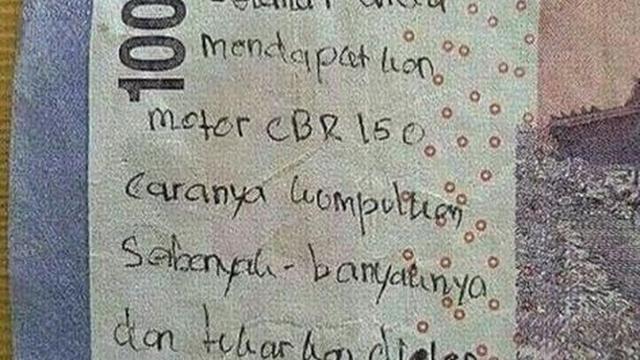 100
Selamat anda
mendapatkan
motor CBR 150
caranya kumpulkan
Sebanyak-banyaknya
dan tukarkan